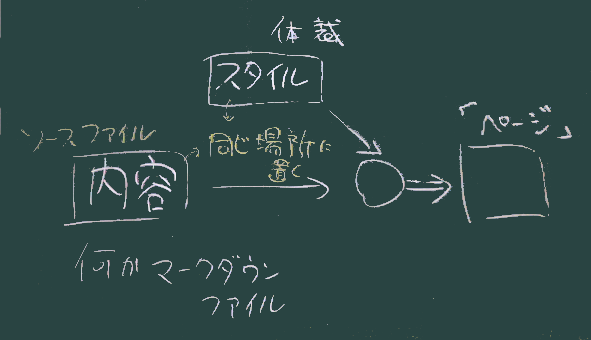 体裁
スタイル
「ページ」
ソースファイル
同じ場所に
置く
内容
何かマークダウン
ファイル